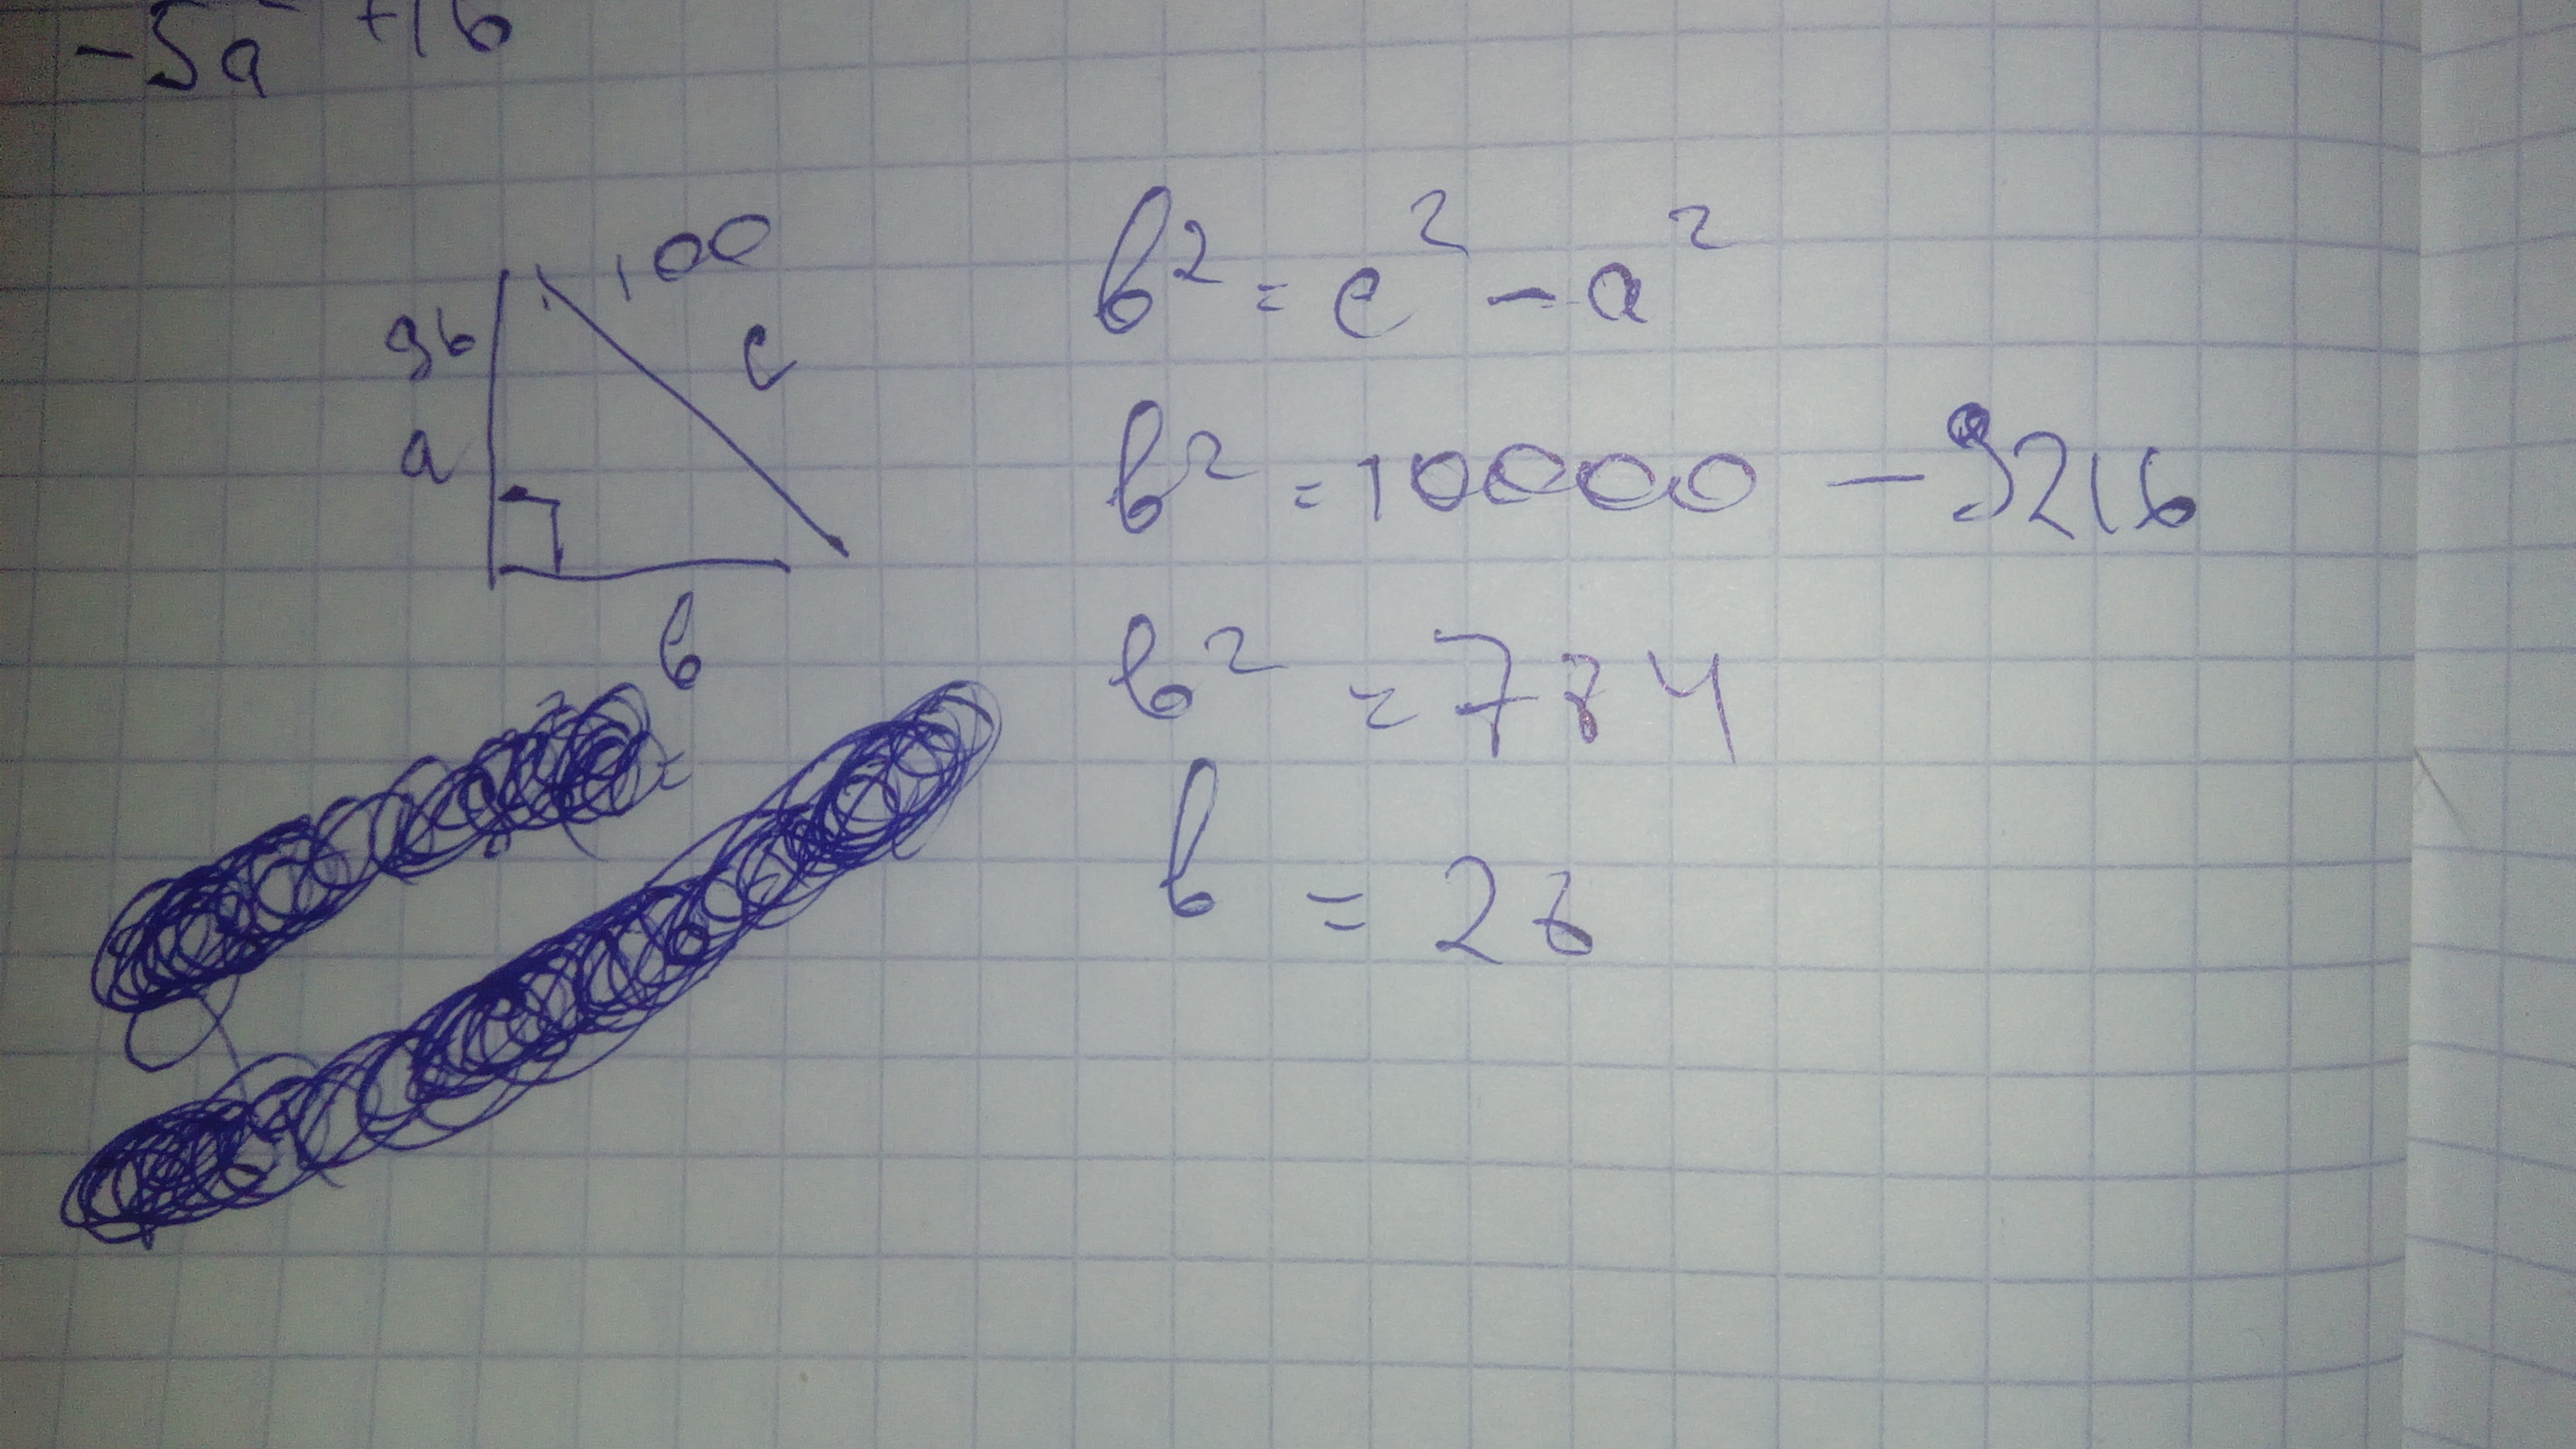 -5a +16
100
96
c
a
b
b² = c² - a²
b² = 10000 - 9216
b² = 784
b = 28